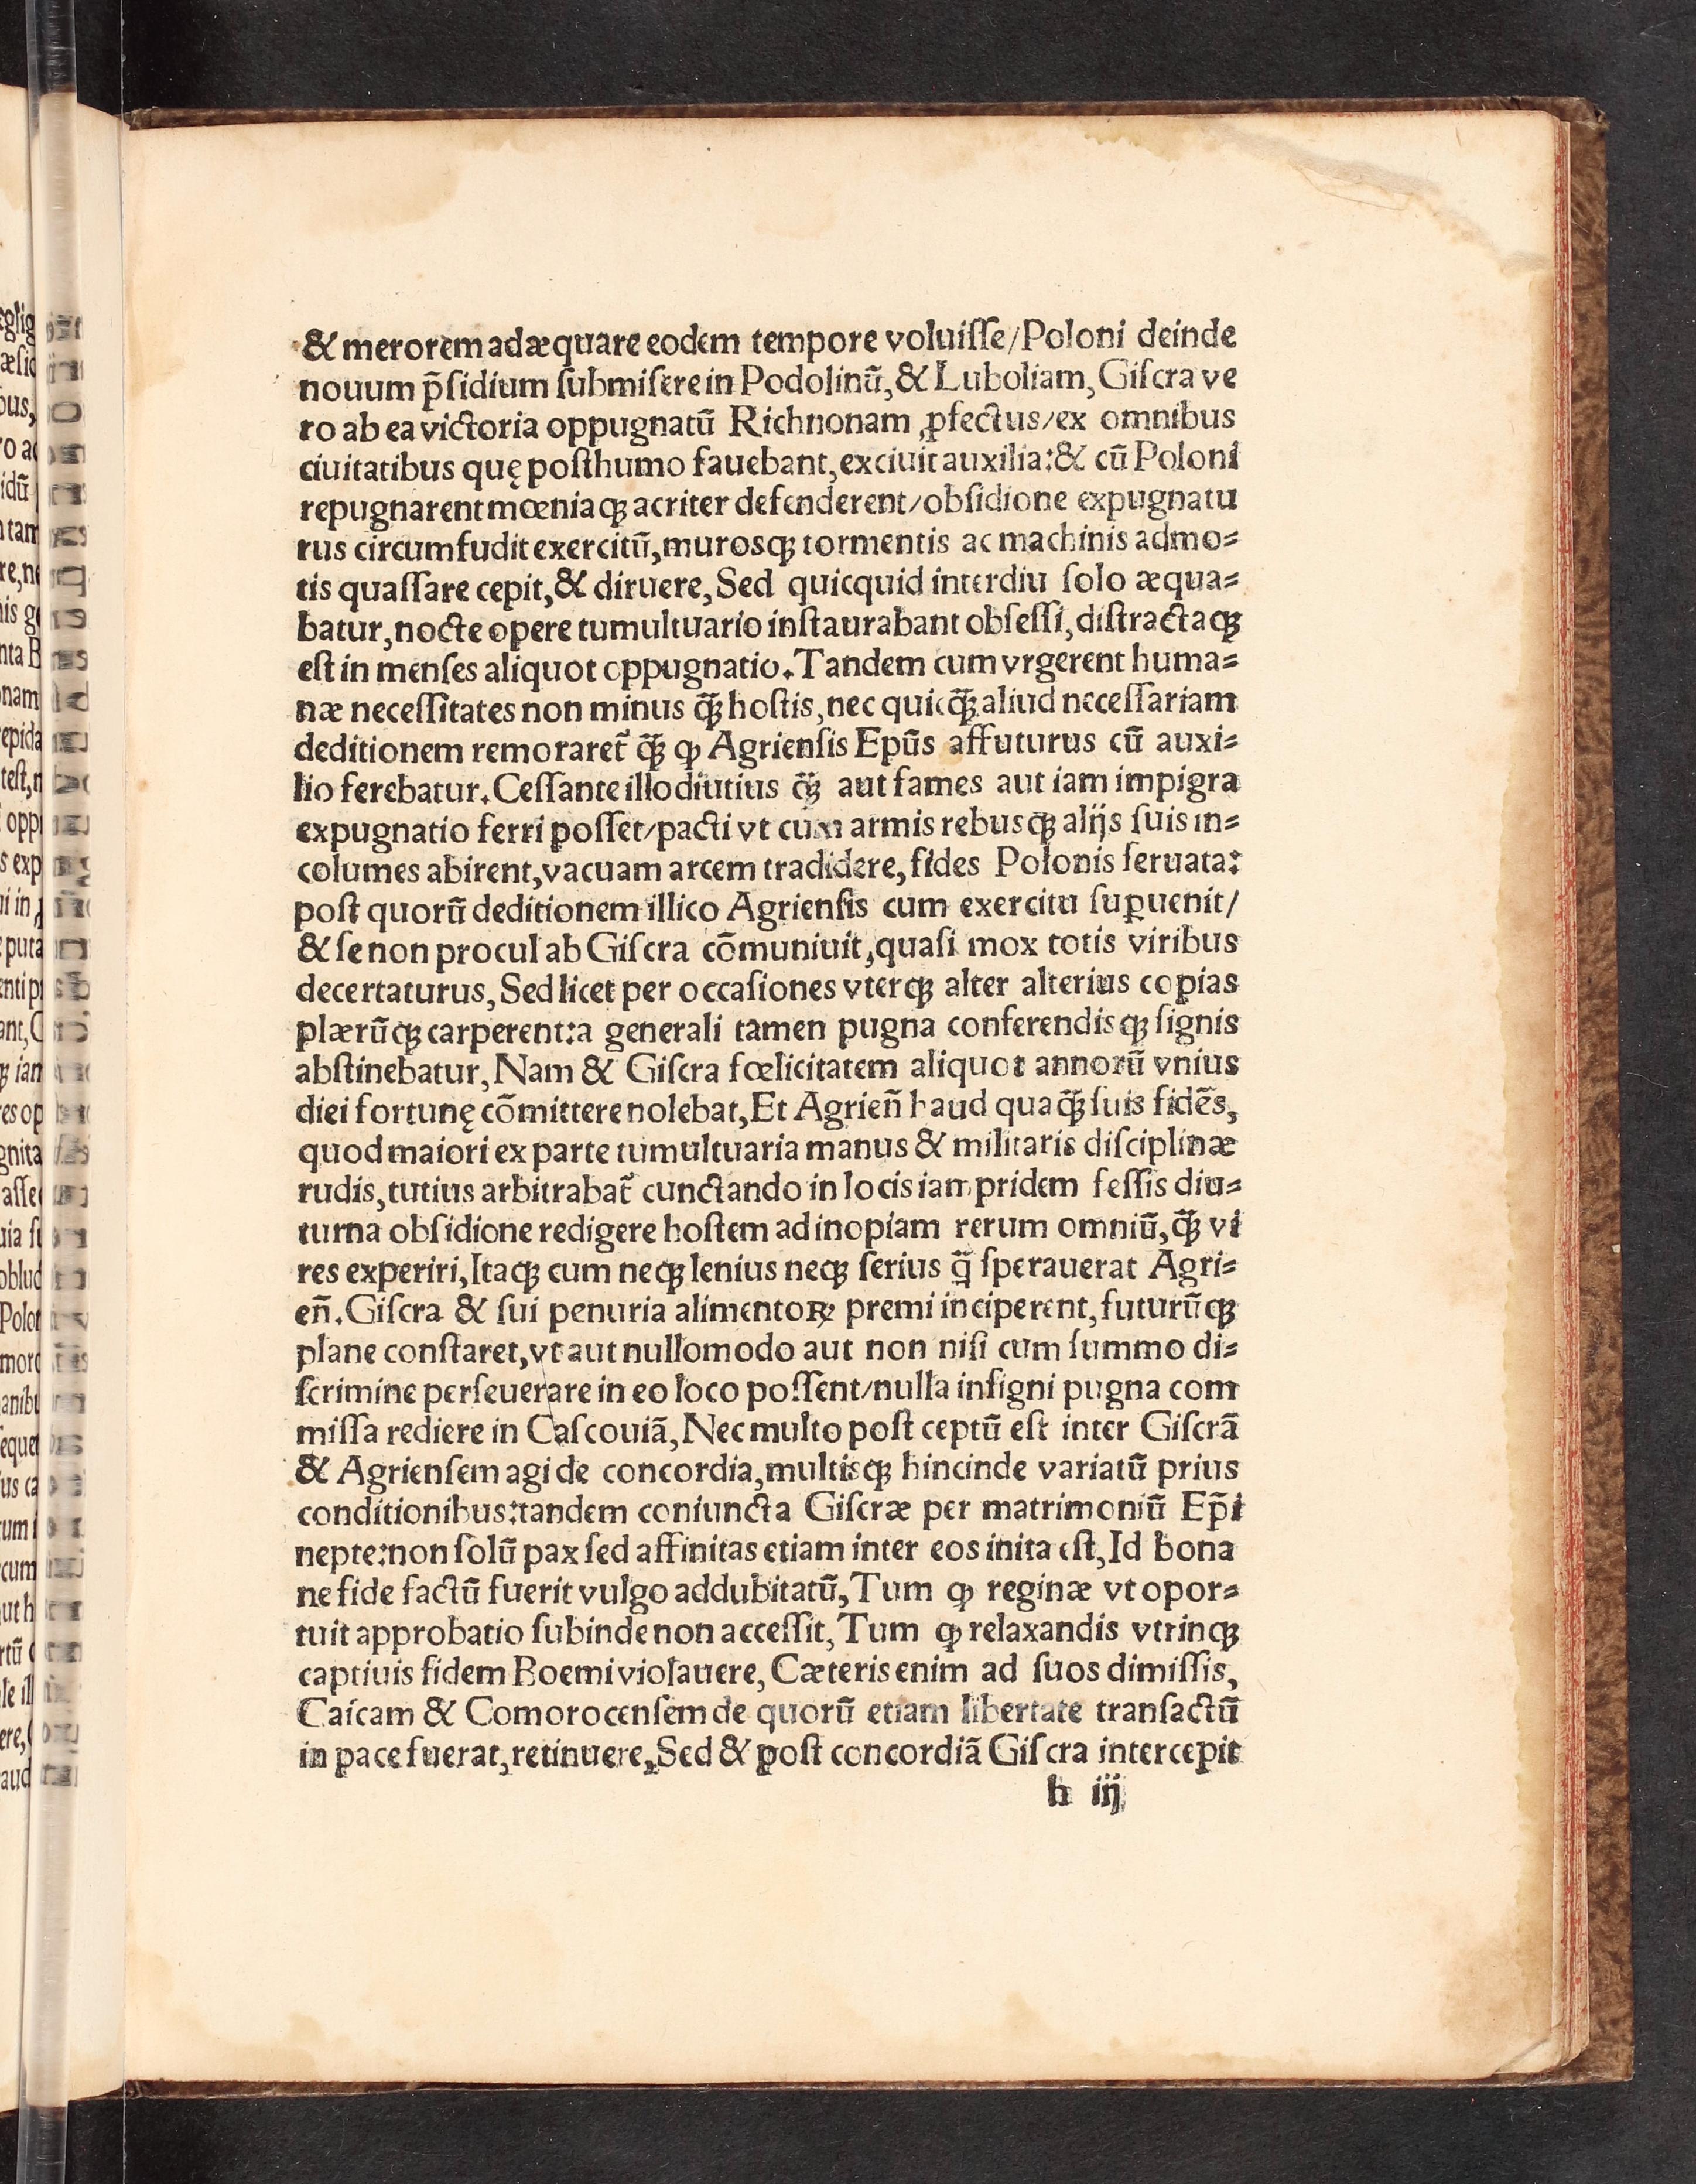 & merorem adæquare eodem tempore voluiſſe/Poloni deinde
nouum p̃ſidium ſubmiſere in Podolinũ, & Luboliam, Giſcra ve
ro ab ea victoria oppugnatũ Richnonam ꝓfectus/ex omnibus
ciuitatibus quę poſthumo fauebant, exciuit auxilia: & cũ Poloni
repugnarent mœniaqꝫ acriter defenderent/obſidione expugnatu
rus circumfudit exercitũ, murosqꝫ tormentis ac machinis admo⸗
tis quaſſare cepit, & diruere, Sed quicquid interdiu ſolo æqua⸗
batur, nocte opere tumultuario inſtaurabant obſeſſi, diſtractaqꝫ
eſt in menſes aliquot oppugnatio. Tandem cum vrgerent huma⸗
næ neceſſitates non minus q̃ꝫ hoſtis, nec quicq̃ꝫ aliud neceſſariam
deditionem remoraret᷑ q̃ꝫ ꝙ Agrienſis Epũs affuturus cũ auxi⸗
lio ferebatur. Ceſſante illo diutius q̃ꝫ aut fames aut iam impigra
expugnatio ferri poſſet/pacti vt cum armis rebusqꝫ alijs ſuis in⸗
columes abirent, vacuam arcem tradidere, fides Polonis ſeruata:
poſt quorũ deditionem illico Agrienſis cum exercitu ſuꝑuenit/
& ſe non procul ab Giſcra cõmuniuit, quaſi mox totis viribus
decertaturus, Sed licet per occaſiones vterqꝫ alter alterius copias
plærũqꝫ carperent: a generali tamen pugna conferendisqꝫ ſignis
abſtinebatur, Nam & Giſcra fœlicitatem aliquot annorũ vnius
diei fortunę cõmittere nolebat, Et Agrieñ haud quaq̃ꝫ ſuis fidẽs,
quod maiori ex parte tumultuaria manus & militaris diſciplinæ
rudis, tutius arbitrabat᷑ cunctando in locis iam pridem feſſis diu⸗
turna obſidione redigere hoſtem ad inopiam rerum omniũ, q̃ꝫ vi
res experiri, Itaqꝫ cum neqꝫ lenius neqꝫ ſerius q̃ ſperauerat Agri⸗
eñ. Giſcra & ſui penuria alimentoꝝ premi inciperent, futurũqꝫ
plane conſtaret, vt aut nullomodo aut non niſi cum ſummo di⸗
ſcrimine perſeuerare in eo loco poſſent/nulla inſigni pugna com
miſſa rediere in Caſcouiã, Nec multo poſt ceptũ eſt inter Giſcrã
& Agrienſem agi de concordia, multisqꝫ hincinde variatũ prius
conditionibus: tandem coniuncta Giſcræ per matrimoniũ Ep̃i
nepte: non ſolũ pax ſed affinitas etiam inter eos inita eſt, Id bona
ne fide factũ fuerit vulgo addubitatũ, Tum ꝙ reginæ vt opor⸗
tuit approbatio ſubinde non acceſſit, Tum ꝙ relaxandis vtrinqꝫ
captiuis fidem Boemi violauere, Cæteris enim ad ſuos dimiſſis,
Caicam & Comorocenſem de quorũ etiam libertate transactũ
in pace fuerat, retinuere, Sed & poſt concordiã Giſcra intercepit
h iij